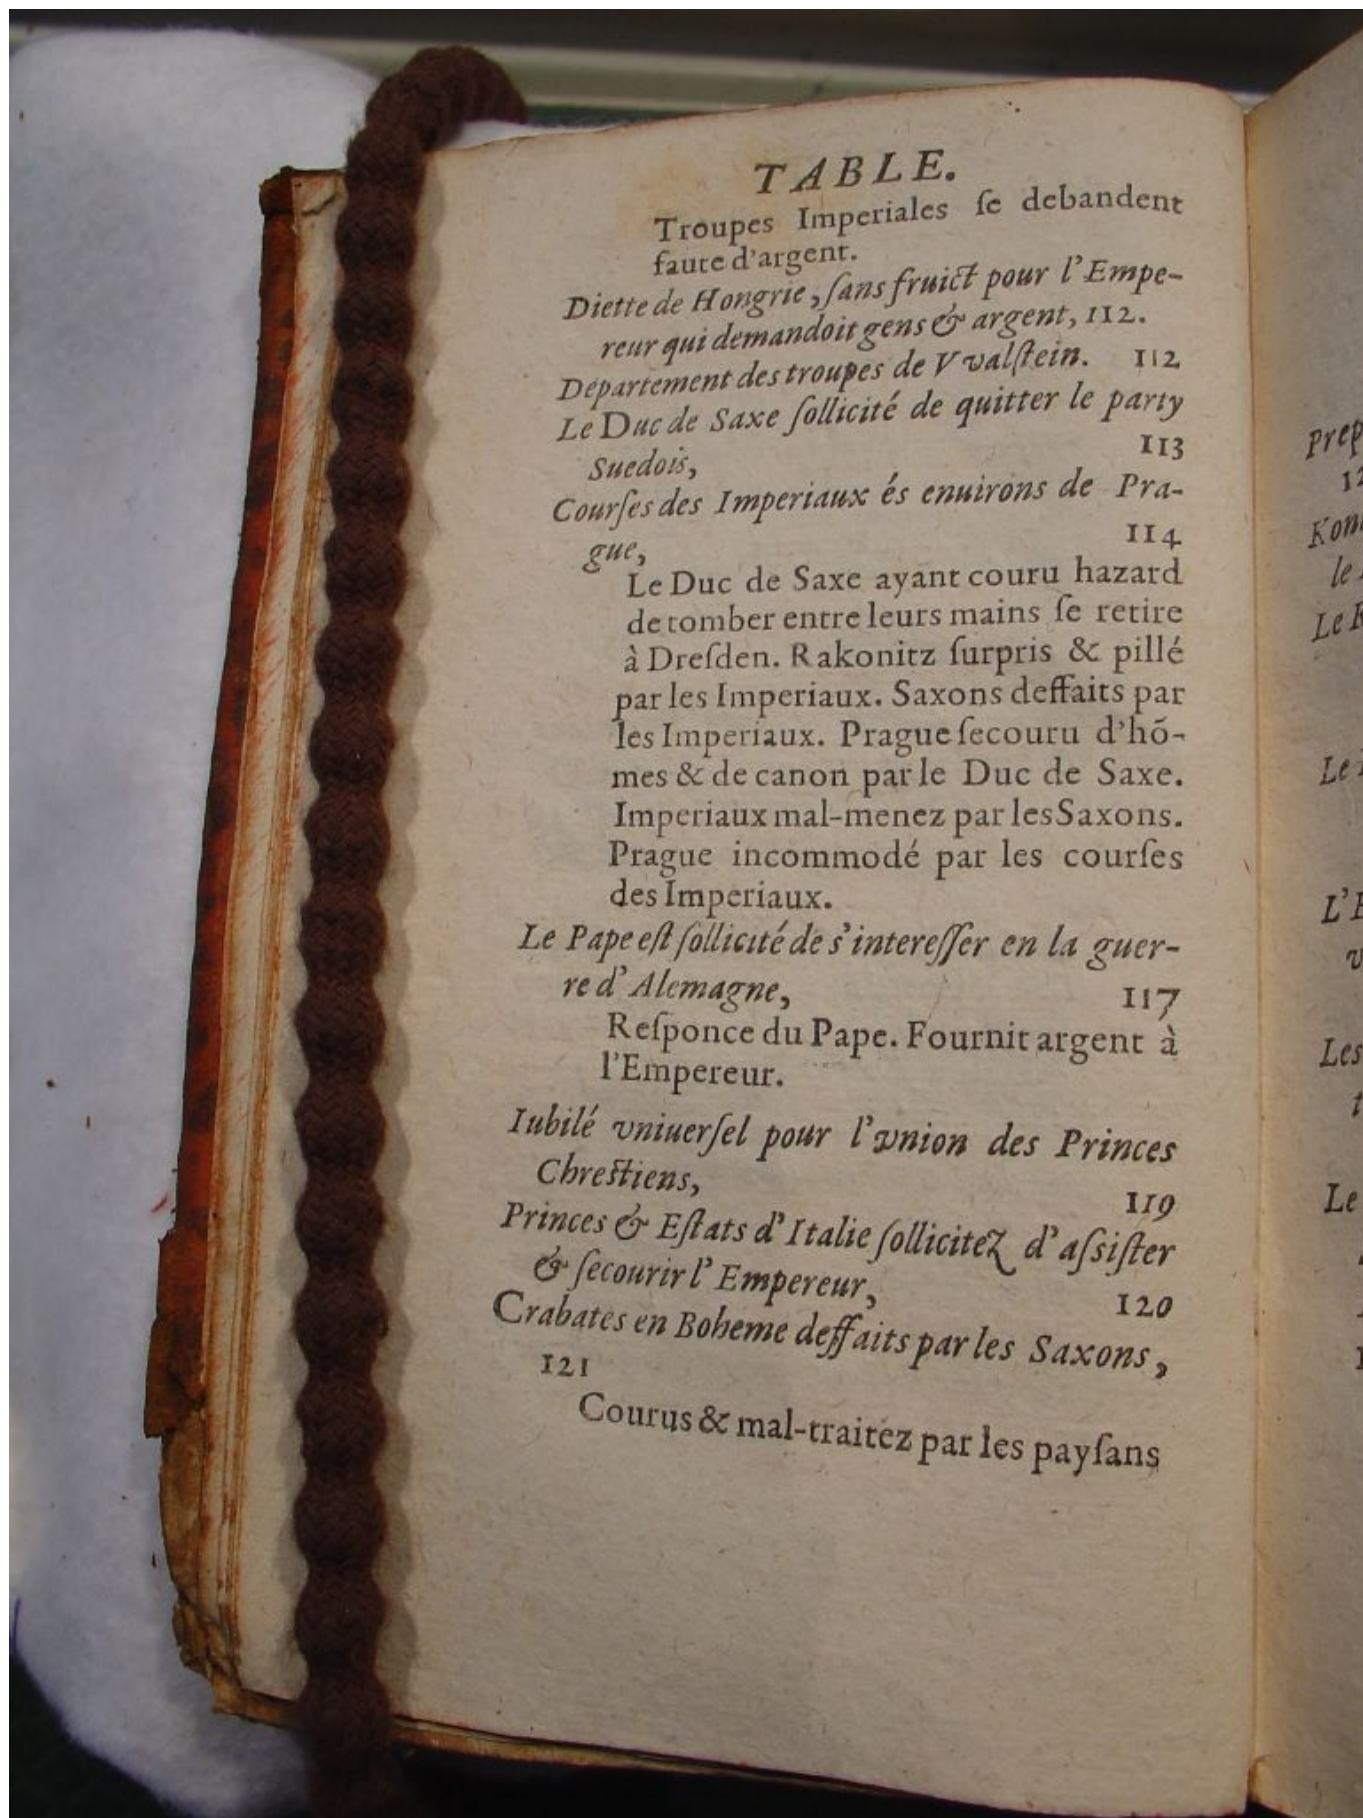 TABLE.
Troupes Imperiales ſe debandent
faute d'argent.
Diette de Hongrie, ſans fruict pour l'Empe-
reur qui demandoit gens & argent, 112.
Departement des troupes de VValſtein. 112
Le Duc de Saxe ſollicité de quitter le party
Suedois, 113
Courſes des Imperiaux és enuirons de Pra-
gue, 114
Le Duc de Saxe ayant couru hazard
de tomber entre leurs mains ſe retire
à Dreſden. Rakonitz ſurpris & pillé
par les Imperiaux. Saxons deffaits par
les Imperiaux. Prague ſecouru d'hõ-
mes & de canon par le Duc de Saxe.
Imperiaux mal-menez par les Saxons.
Prague incommodé par les courſes
des Imperiaux.
Le Pape eſt ſollicité de s'intereſſer en la guer-
re d'Alemagne, 117
Reſponce du Pape. Fournit argent à
l'Empereur.
Iubilé vniuerſel pour l'vnion des Princes
Chreſtiens, 119
Princes & Eſtats d'Italie ſollicitez d'aſsiſter
& ſecourir l'Empereur, 120
Crabates en Boheme deffaits par les Saxons,
121
Courus & mal-traitez par les payſans
Prep
12
le
Le
Le
L'E
v
Les
t
Le